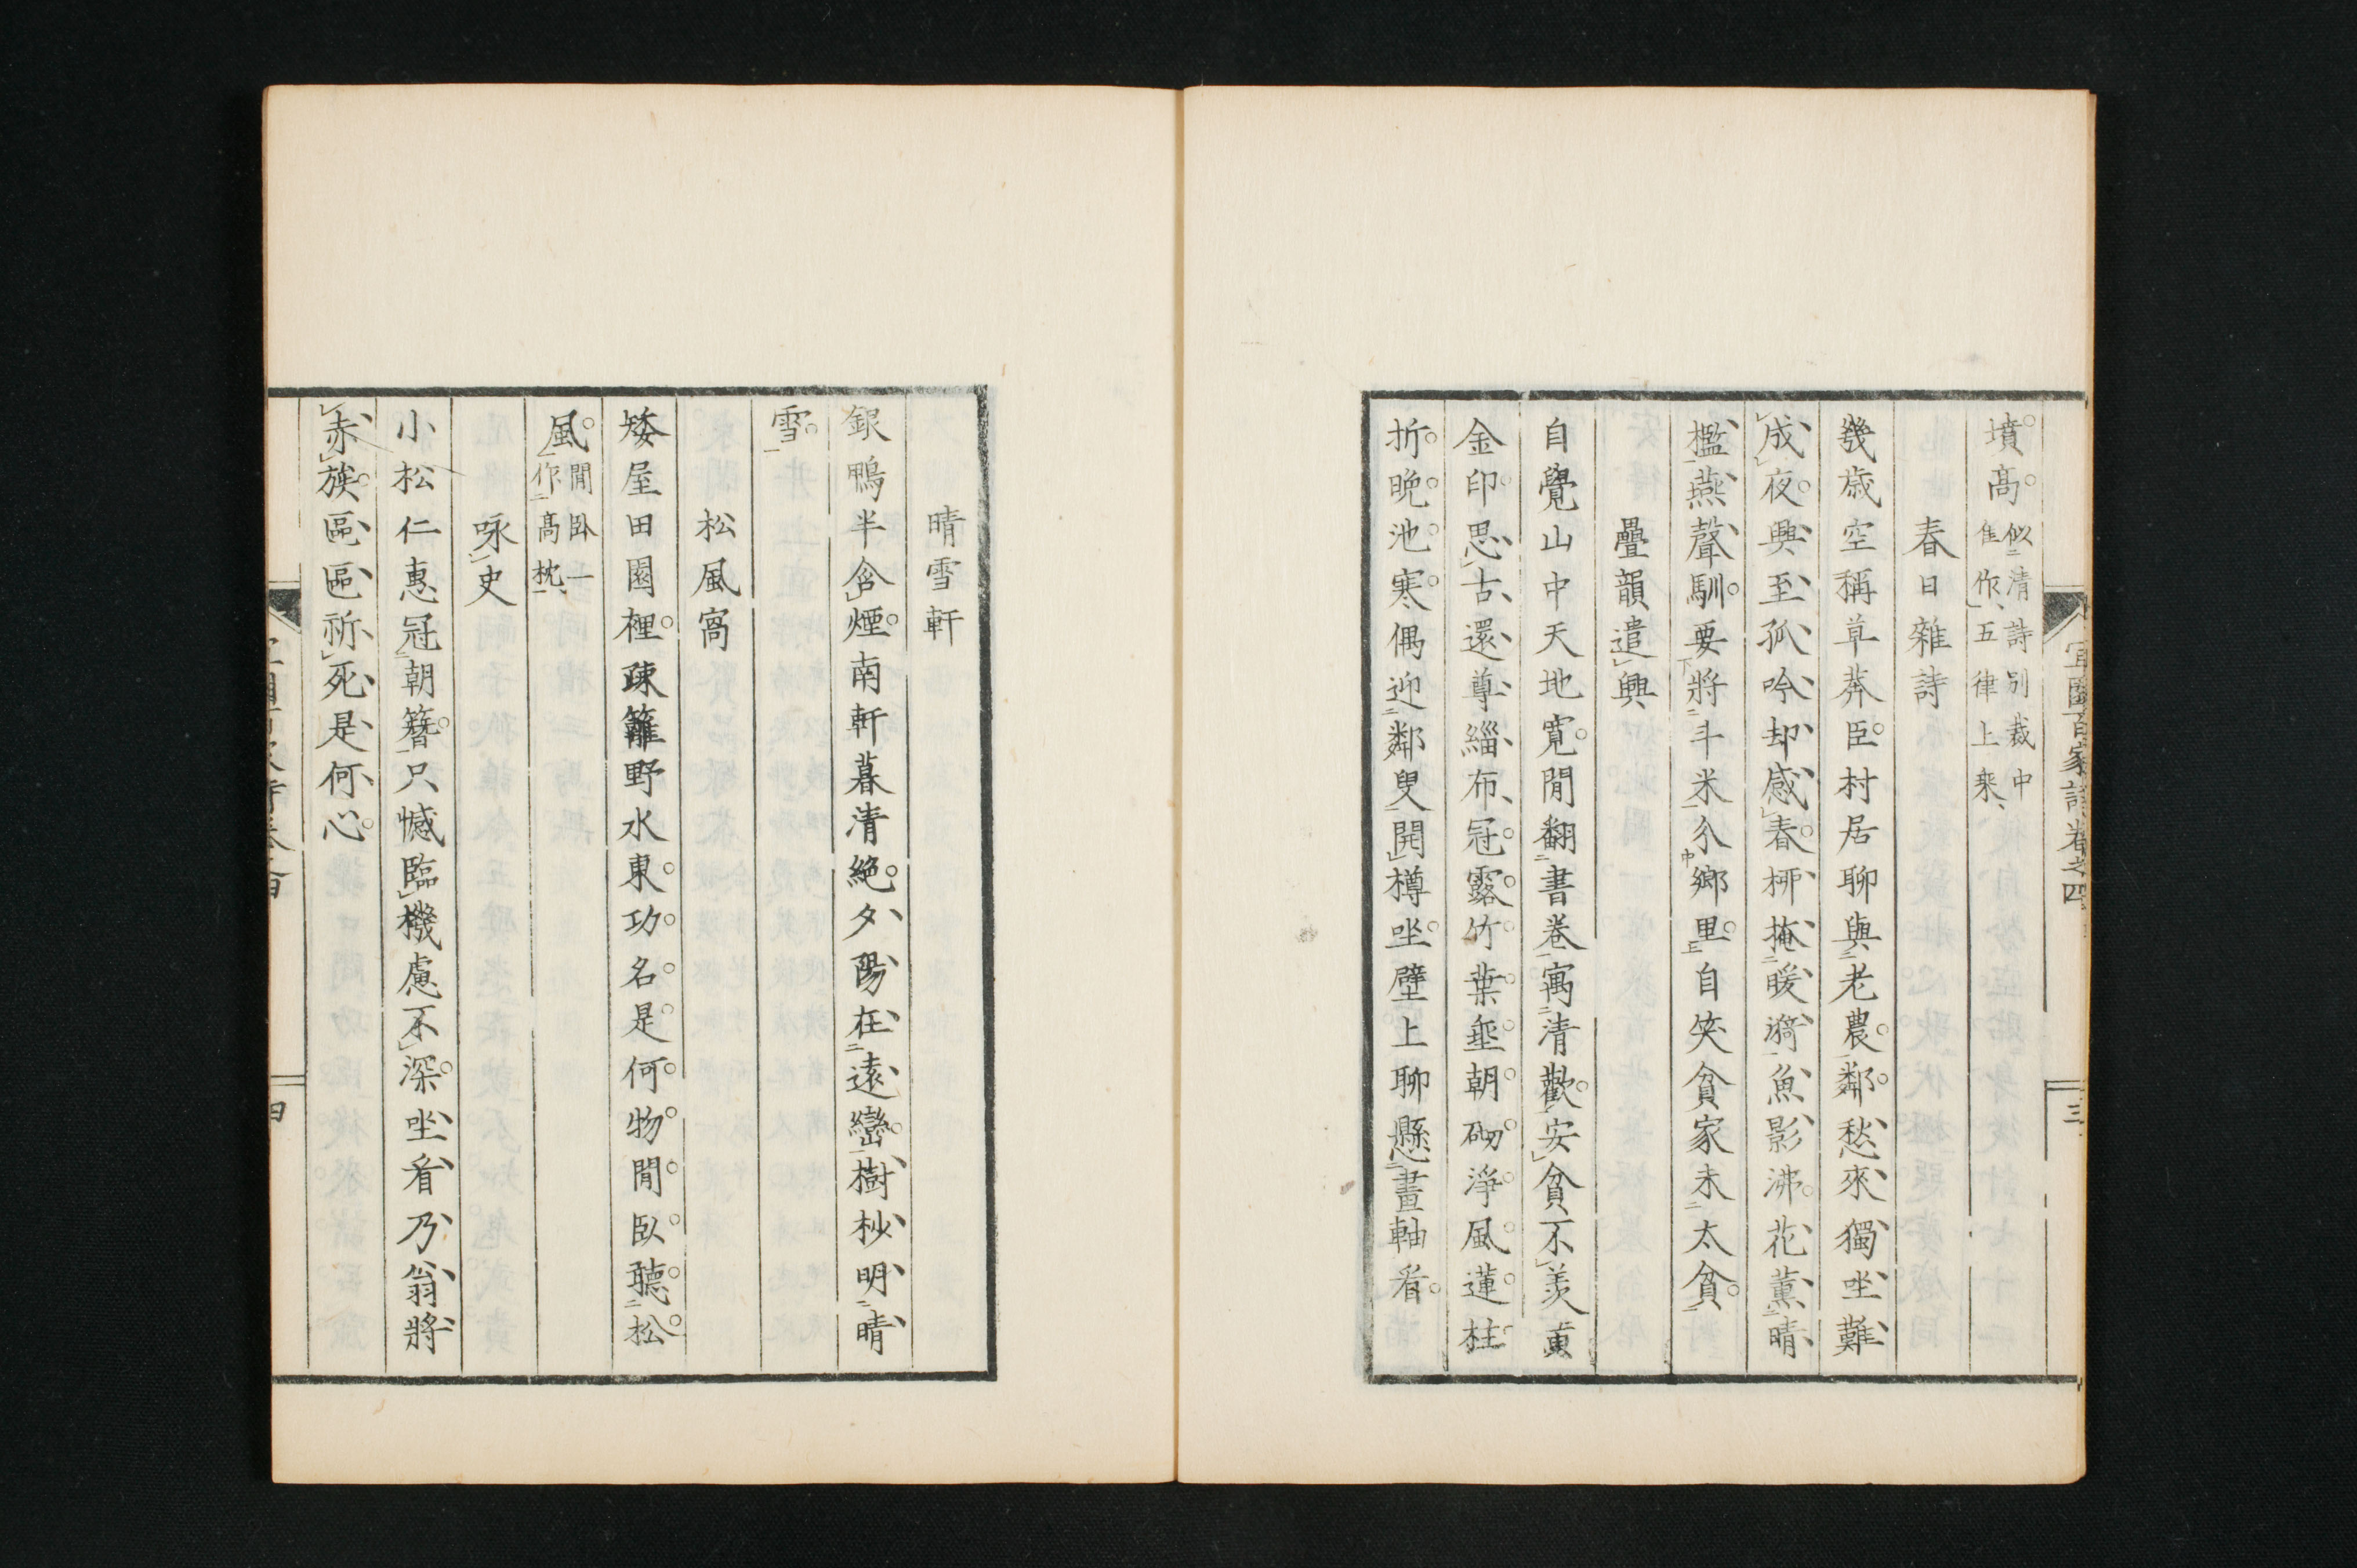 宜園百家詩卷之四
三
墳高似清詩別裁中
隹作五律上乘
春日雜詩
幾歳空稱草莽臣村居聊與老農鄰愁來獨坐難
成夜興至孤吟却感春柳掩暖漪魚影沸花薫晴
檻燕聲馴要將斗米分鄉里自笑貧家未太貧
疊韻遣興
自覺山中天地寛閒翻書巻寓清歡安貧不羨黄
金印思古還尊緇布冠露竹葉垂朝砌淨風蓮柱
折晩池寒偶迎鄰叟開樽坐壁上聊懸畫軸看
晴雪軒
銀鴨半含煙南軒暮清絶夕陽在遠巒樹杪明晴
雪
松風窩
矮屋田園裡疎籬野水東功名是何物閒臥聽松
風閒卧一
作高枕
咏史
小松仁惠冠朝簪只憾臨機慮不深坐看乃翁將
赤族區區祈死是何心
四